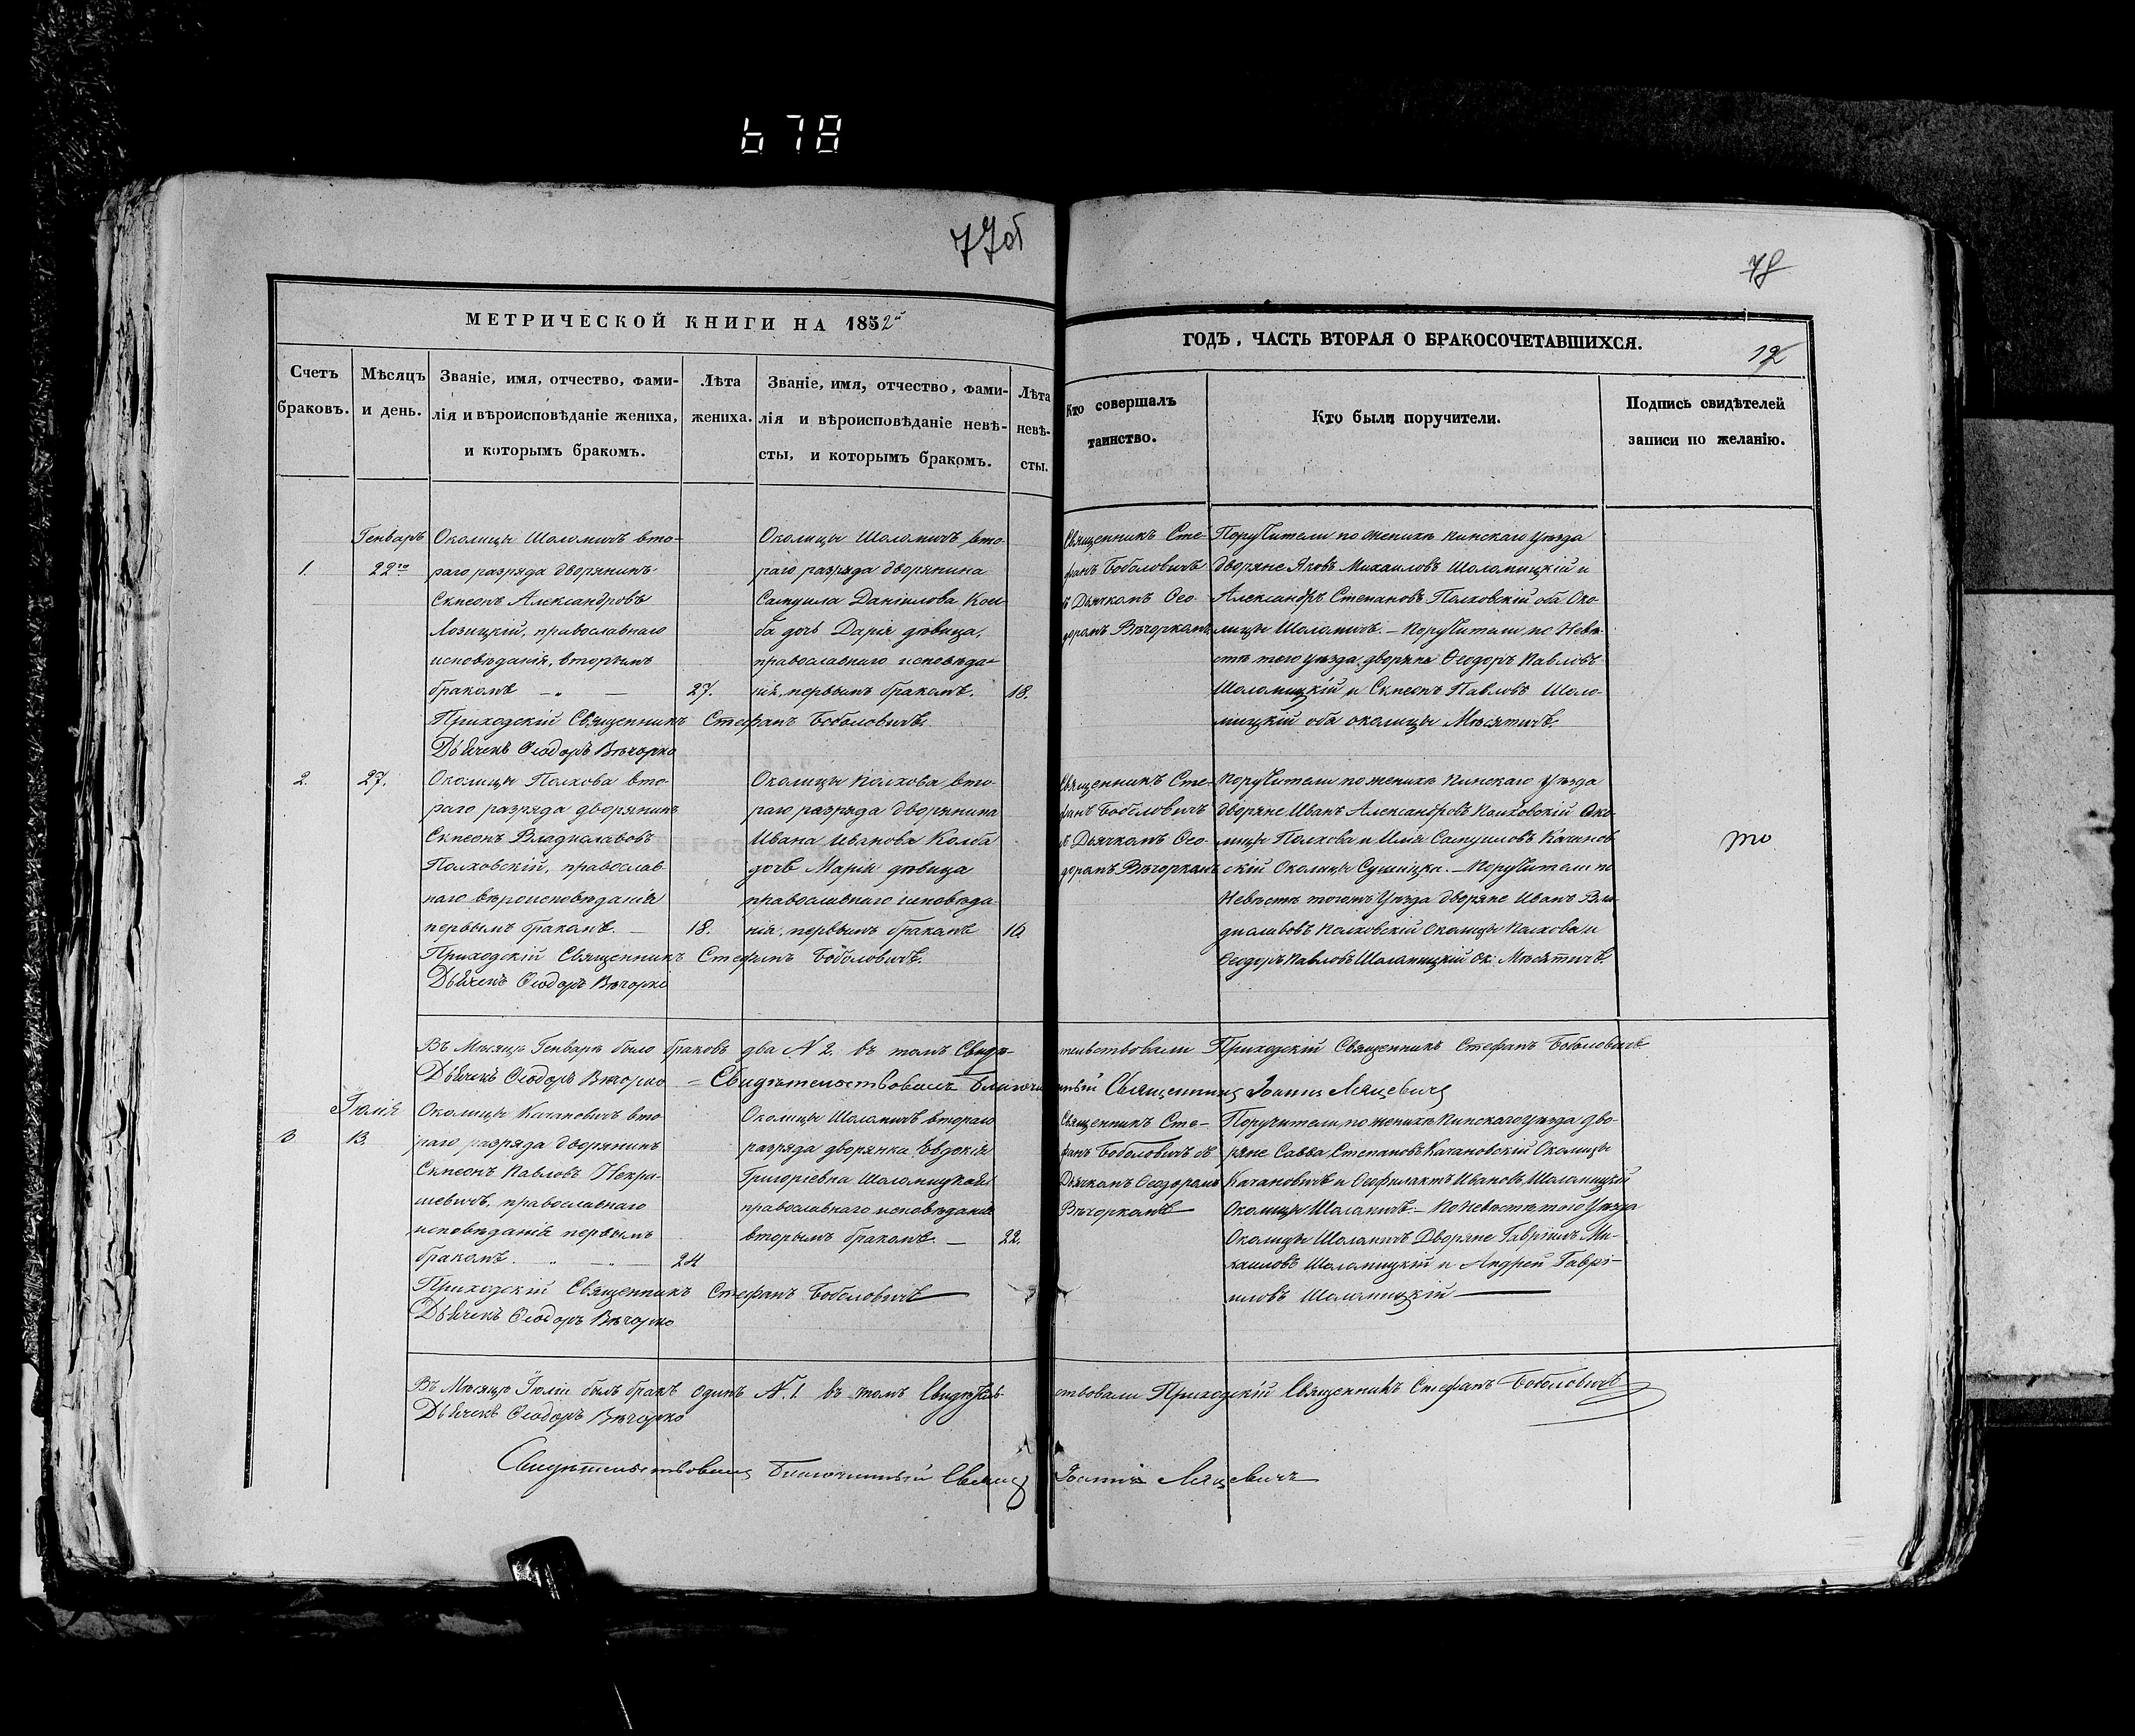 678
77об
78
МЕТРИЧЕСКОЙ КНИГИ НА 1852й
ГОДЪ, ЧАСТЬ ВТОРАЯ О БРАКОСОЧЕТАВШИХСЯ.
12
Счетъ
браковъ.
Мѣсяцъ
и день.
Званіе, имя, отчество, фами-
лія и вѣроисповѣданіе жениха,
и которымъ бракомъ.
Лѣта
жениха.
Званіе, имя, отчество, фами-
лія и вѣроисповѣданіе невѣ-
сты, и которымъ бракомъ.
Лѣта
невѣ-
сты.
Кто совершалъ
таинство.
Кто были поручители.
Подпись свидѣтелей
записи по желанію.
1.
Генваръ
22го
Околицы Шоломичъ вто-
раго разряда дворянинъ
Сѵмеонъ Александровъ
Лозицкій, православнаго
исповѣданія, вторымъ
бракомъ
27.
Околицы Шоломичъ вто-
раго разряда дворянина
Самуила Даніилова Кол-
ба дочь Дарія дѣвица,
православнаго исповѣда-
нія, первымъ бракомъ.
18.
Священникъ Сте-
фанъ Боболовичъ
съ Дьячкомъ Ѳео-
доромъ Вѣчоркомъ
Поручители по женихѣ Пинскаго уѣзда
дворяне Яковъ Михаиловъ Шоломицкій и
Александръ Степановъ Полховскій оба Око-
лицы Шоломичъ. – Поручители по Невѣ-
стѣ того уѣзда дворяне Ѳеодоръ Павловъ
Шоломицкій и Сѵмеонъ Павловъ Шоло-
мицкій оба околицы Мѣсятичъ.
Приходскій Священникъ Стефанъ Боболовичъ
Дьячекъ Ѳеодоръ Вѣчорко
2.
27.
Околицы Полхова вто-
раго разряда дворянинъ
Сѵмеонъ Владиславовъ
Полховскій, православ-
наго вѣроисповѣданія
первымъ бракомъ.
18.
Околицы Полхова вто-
раго разряда дворянина
Ивана Иванова Колба
дочь Марія дѣвица
православнаго исповѣда-
нія, первымъ бракомъ
16.
Священникъ Сте-
фанъ Боболовичъ
съ Дьячкомъ Ѳео-
доромъ Вѣчоркомъ
Поручители по женихѣ Пинскаго уѣзда
дворяне Иванъ Александровъ Полховскій Око-
лицы Полхова и Илія Самуиловъ Качанов-
скій Околицы Сушицка. – Поручители по
Невѣстѣ тогожъ Уѣзда дворяне Иванъ Вла-
диславовъ Полховскій Околицы Полхова и
Ѳеодоръ Павловъ Шоломицкій ок: Мѣсятичъ.
Приходскій Священникъ Стефанъ Боболовичъ.
Дьячекъ Ѳеодоръ Вѣчорко
Въ Мѣсяцѣ Генварѣ было браковъ два N 2. въ томъ Свидѣ-тельствовали Приходскій Священникъ Стефанъ Боболовичъ
Дьячекъ Ѳеодоръ Вѣчорко – Свидѣтельствовалъ Благочинный Священникъ Іоаннъ Ляцевичъ
3
Іюлія
13
Околицы Качановичъ вто-
раго разряда дворянинъ
Сѵмеонъ Павловъ Некра-
шевичъ, православнаго
исповѣданія первымъ
бракомъ.
24
Околицы Шоломичъ втораго
разряда дворянка Евдокія
Григоріевна Шоломицкая
православнаго исповѣданія
вторымъ бракомъ.
22.
Священникъ Сте-
фанъ Боболовичъ съ
Дьячкомъ Ѳеодоромъ
Вѣчоркомъ
Поручители по женихѣ Пинскаго уѣзда дво-
ряне Савва Степановъ Качановскій Околицы
Качановичъ и Ѳеофилактъ Ивановъ Шоломицкій
Околицы Шоломичъ. – По Невѣстѣ того Уѣзда
Околицы Шоломичъ Дворяне Гавріилъ Ми-
хаиловъ Шоломицкій и Андрей Гаврі-
иловъ Шоломицкій
Приходскій Священникъ Стефанъ Боболовичъ
Дьячекъ Ѳеодоръ Вѣчорко
Въ Мѣсяцѣ Іюліи былъ бракъ одинъ N. 1. въ томъ Свидѣтель-ствовали Приходскій Священникъ Стефанъ Боболовичъ
Дьячекъ Ѳеодоръ Вѣчорко
Свидѣтельствовалъ Благочинный Священ Іоаннъ Ляцевичъ